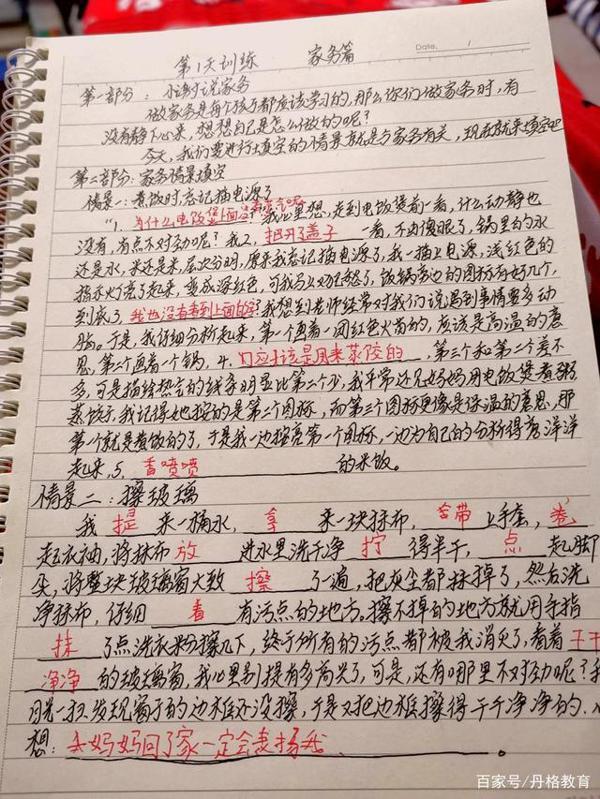 Date. 1
第1天训练 家务篇
第一部分: 说家务
做家务是每个孩子都应该学习的,那么你们做家务时,有
没有静下心来,想想自己是怎么做的呢?
今天,我们要进行填空的情景就是与家务有关,现在就来填空吧
第二部分:家务情景填空
情景一:煮饭时忘记插电源了
"1、为什么电饭煲上面没有蒸气呢?"我心里想,走到电饭煲前一看,什么动静也
没有,有点不对劲呢?我2、把开了盖子一看,不由傻眼了,锅里的水
还是水,米还是米,层次分明,原来我忘记插电源了,我一插上电源,浅红色的
指示灯亮了起来,变成深红色,可我马上又发愁了,饭锅旁边的图标有好几个,
到底3、我也没有看到上面的字?我想到老师经常对我们说遇到事情要多动
脑。于是,我仔细分析起来,第一个画着一团红色火苗的,应该是高温的意
思,第二个画着一个锅,4、应该是用来蒸饺的,第三个和第二个差不
多,可是描绘热气的线条明显比第二个少,我平常还见妈妈用电饭煲煮粥
蒸饺子,我记得她按的是第二个图标,而第三个图标更像是保温的意思,那
第一个就是煮饭的了,于是我一边按亮第一个图标,一边为自己的分析得意洋洋
起来,5、香喷喷的米饭。
情景二:擦玻璃
我提来一桶水,拿来一块抹布,带上手套,卷
起衣袖,将抹布放进水里洗干净拧得半干,点起脚
尖,将整块玻璃窗大致擦了一遍,把灰尘都抹掉了,然后洗
净抹布,仔细看有污点的地方。擦不掉的地方就用手指
抹了点洗衣粉擦几下,终于所有的污点都被我消灭了,看着干干
净净的玻璃窗,我心里别提有多高兴了,可是,还有哪里不对劲呢?我
目光一扫,发现窗子的边框还没擦,于是又把边框擦得干干净净的。心
想:妈妈回了家一定会表扬我。
百家号/丹格教育